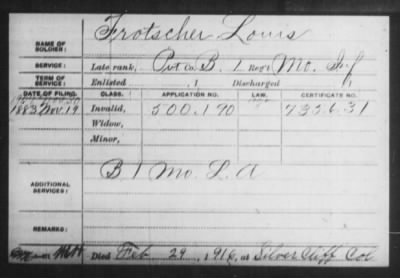 NAME OF SOLDIER: Frotscher Louis
SERVICE: Late rank, Pvt Co. B, 1 Reg't Mo. Inf
TERM OF SERVICE: Enlisted , 1 Discharged , 1
DATE OF FILING. CLASS. APPLICATION NO. LAW. CERTIFICATE NO.
1883 Nov. 19 Invalid, 500.190 735.631
Widow,
Minor,
ADDITIONAL SERVICES: B 1 Mo. L. A
REMARKS:
Died Feb 29, 1916, at Silver Cliff Col